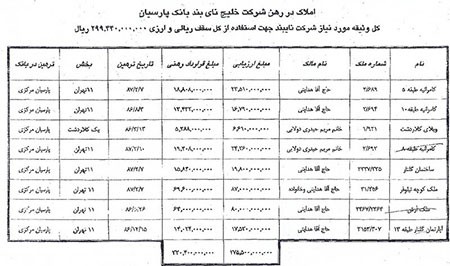 املاک در رهن شرکت خلیج نای بند بانک پارسیان
کل وثیقه مورد نیاز شرکت نایبند جهت استفاده از کل سقف ریالی و ارزی ۲۹۹,۳۳۰,۰۰۰,۰۰۰ ریال
نام شماره ملک نام مالک مبلغ ارزیابی مبلغ قرارداد رهنی تاریخ ترهین بخش ترهین در بانک
کامرانیه طبقه ۵ ۲/۶۸۹ حاج آقا هدایتی ۲۳,۵۱۰,۰۰۰,۰۰۰ ۱۸,۸۰۸,۰۰۰,۰۰۰ ۸۷/۲/۷ ۱۱ تهران پارسیان مرکزی
کامرانیه طبقه ۱۰ ۲/۶۹۴ حاج آقا هدایتی ۱۶,۷۹۰,۰۰۰,۰۰۰ ۱۳,۴۳۲,۰۰۰,۰۰۰ ۸۶/۸/۳ ۱۱ تهران پارسیان مرکزی
ویلای کلاردشت ۱/۹۲۱ خانم مریم حیدری دولابی ۶,۶۱۰,۰۰۰,۰۰۰ ۵,۲۸۸,۰۰۰,۰۰۰ ۸۶/۲/۱۳ یک کلاردشت پارسیان مرکزی
کامرانیه طبقه ۸ ۲/۶۹۲ خانم مریم حیدری دولابی ۲۴,۲۶۰,۰۰۰,۰۰۰ ۱۹,۴۰۸,۰۰۰,۰۰۰ ۸۷/۲/۱۰ ۱۱ تهران پارسیان مرکزی
ساختمان گلنار حاج آقا هدایتی ۱۹,۸۰۰,۰۰۰,۰۰۰ ۱۵,۸۴۰,۰۰۰,۰۰۰ ۸۷/۲/۷ ۱۱ تهران پارسیان مرکزی
ملک کوچه نیلوفر ۳۱/۳۵۶ حاج آقا هدایتی وخانواده ۸۷,۰۰۰,۰۰۰,۰۰۰ ۶۹,۶۰۰,۰۰۰,۰۰۰ ۸۷/۲/۷ ۱۱ تهران پارسیان مرکزی
ملک حاج آقا هدایتی ۸۰,۰۰۰,۰۰۰,۰۰۰ ۱۱ تهران پارسیان مرکزی
آپارتمان گلنار طبقه ۱۳ ۳۱۵۳/۳۰۷ حاج آقا هدایتی ۱۷,۵۳۰,۰۰۰,۰۰۰ ۱۴,۰۲۴,۰۰۰,۰۰۰ ۸۶/۱۲/۱۵ ۱۱ تهران پارسیان مرکزی
۲۷۵,۵۰۰,۰۰۰,۰۰۰ ۲۲۰,۴۰۰,۰۰۰,۰۰۰